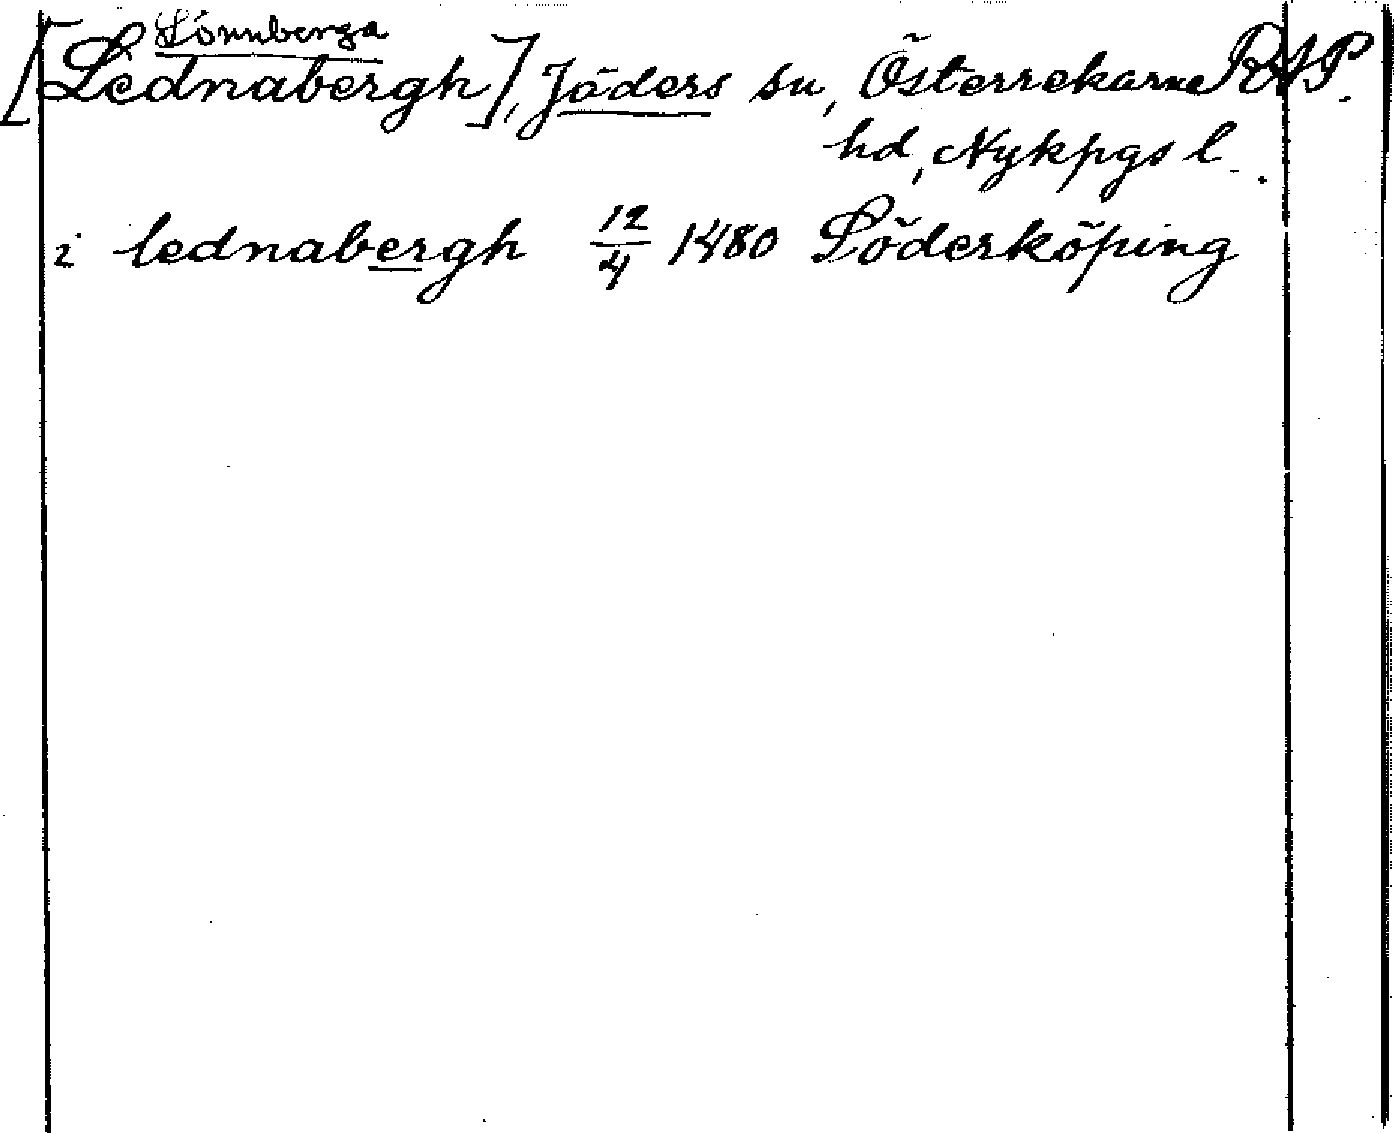 Lönnberga
[Lednabergh], Jäders sn, Österrekarne RAP.
hd, Nykpgs l.
i lednabergh 12/4 1480 Söderköping